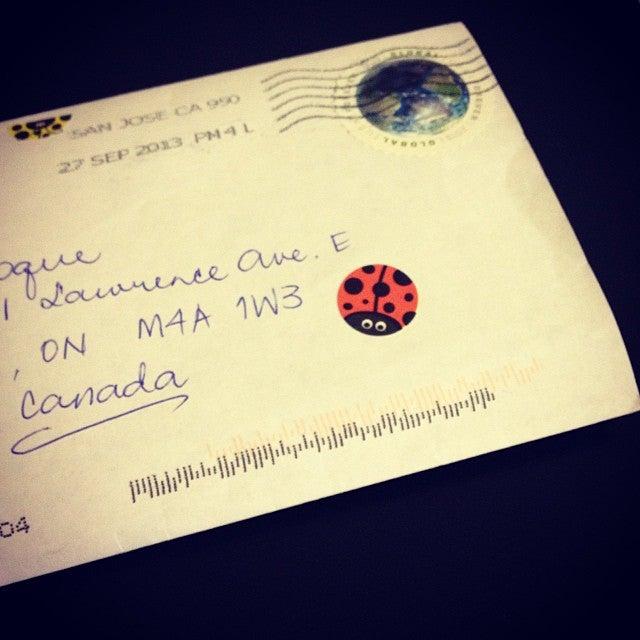 SAN JOSE CA 950
27 SEP 2013 PM 4 L
GLOBAL
GLOBAL
oque
1 Lawrence Ave. E
, ON M4A 1W3
Canada
04